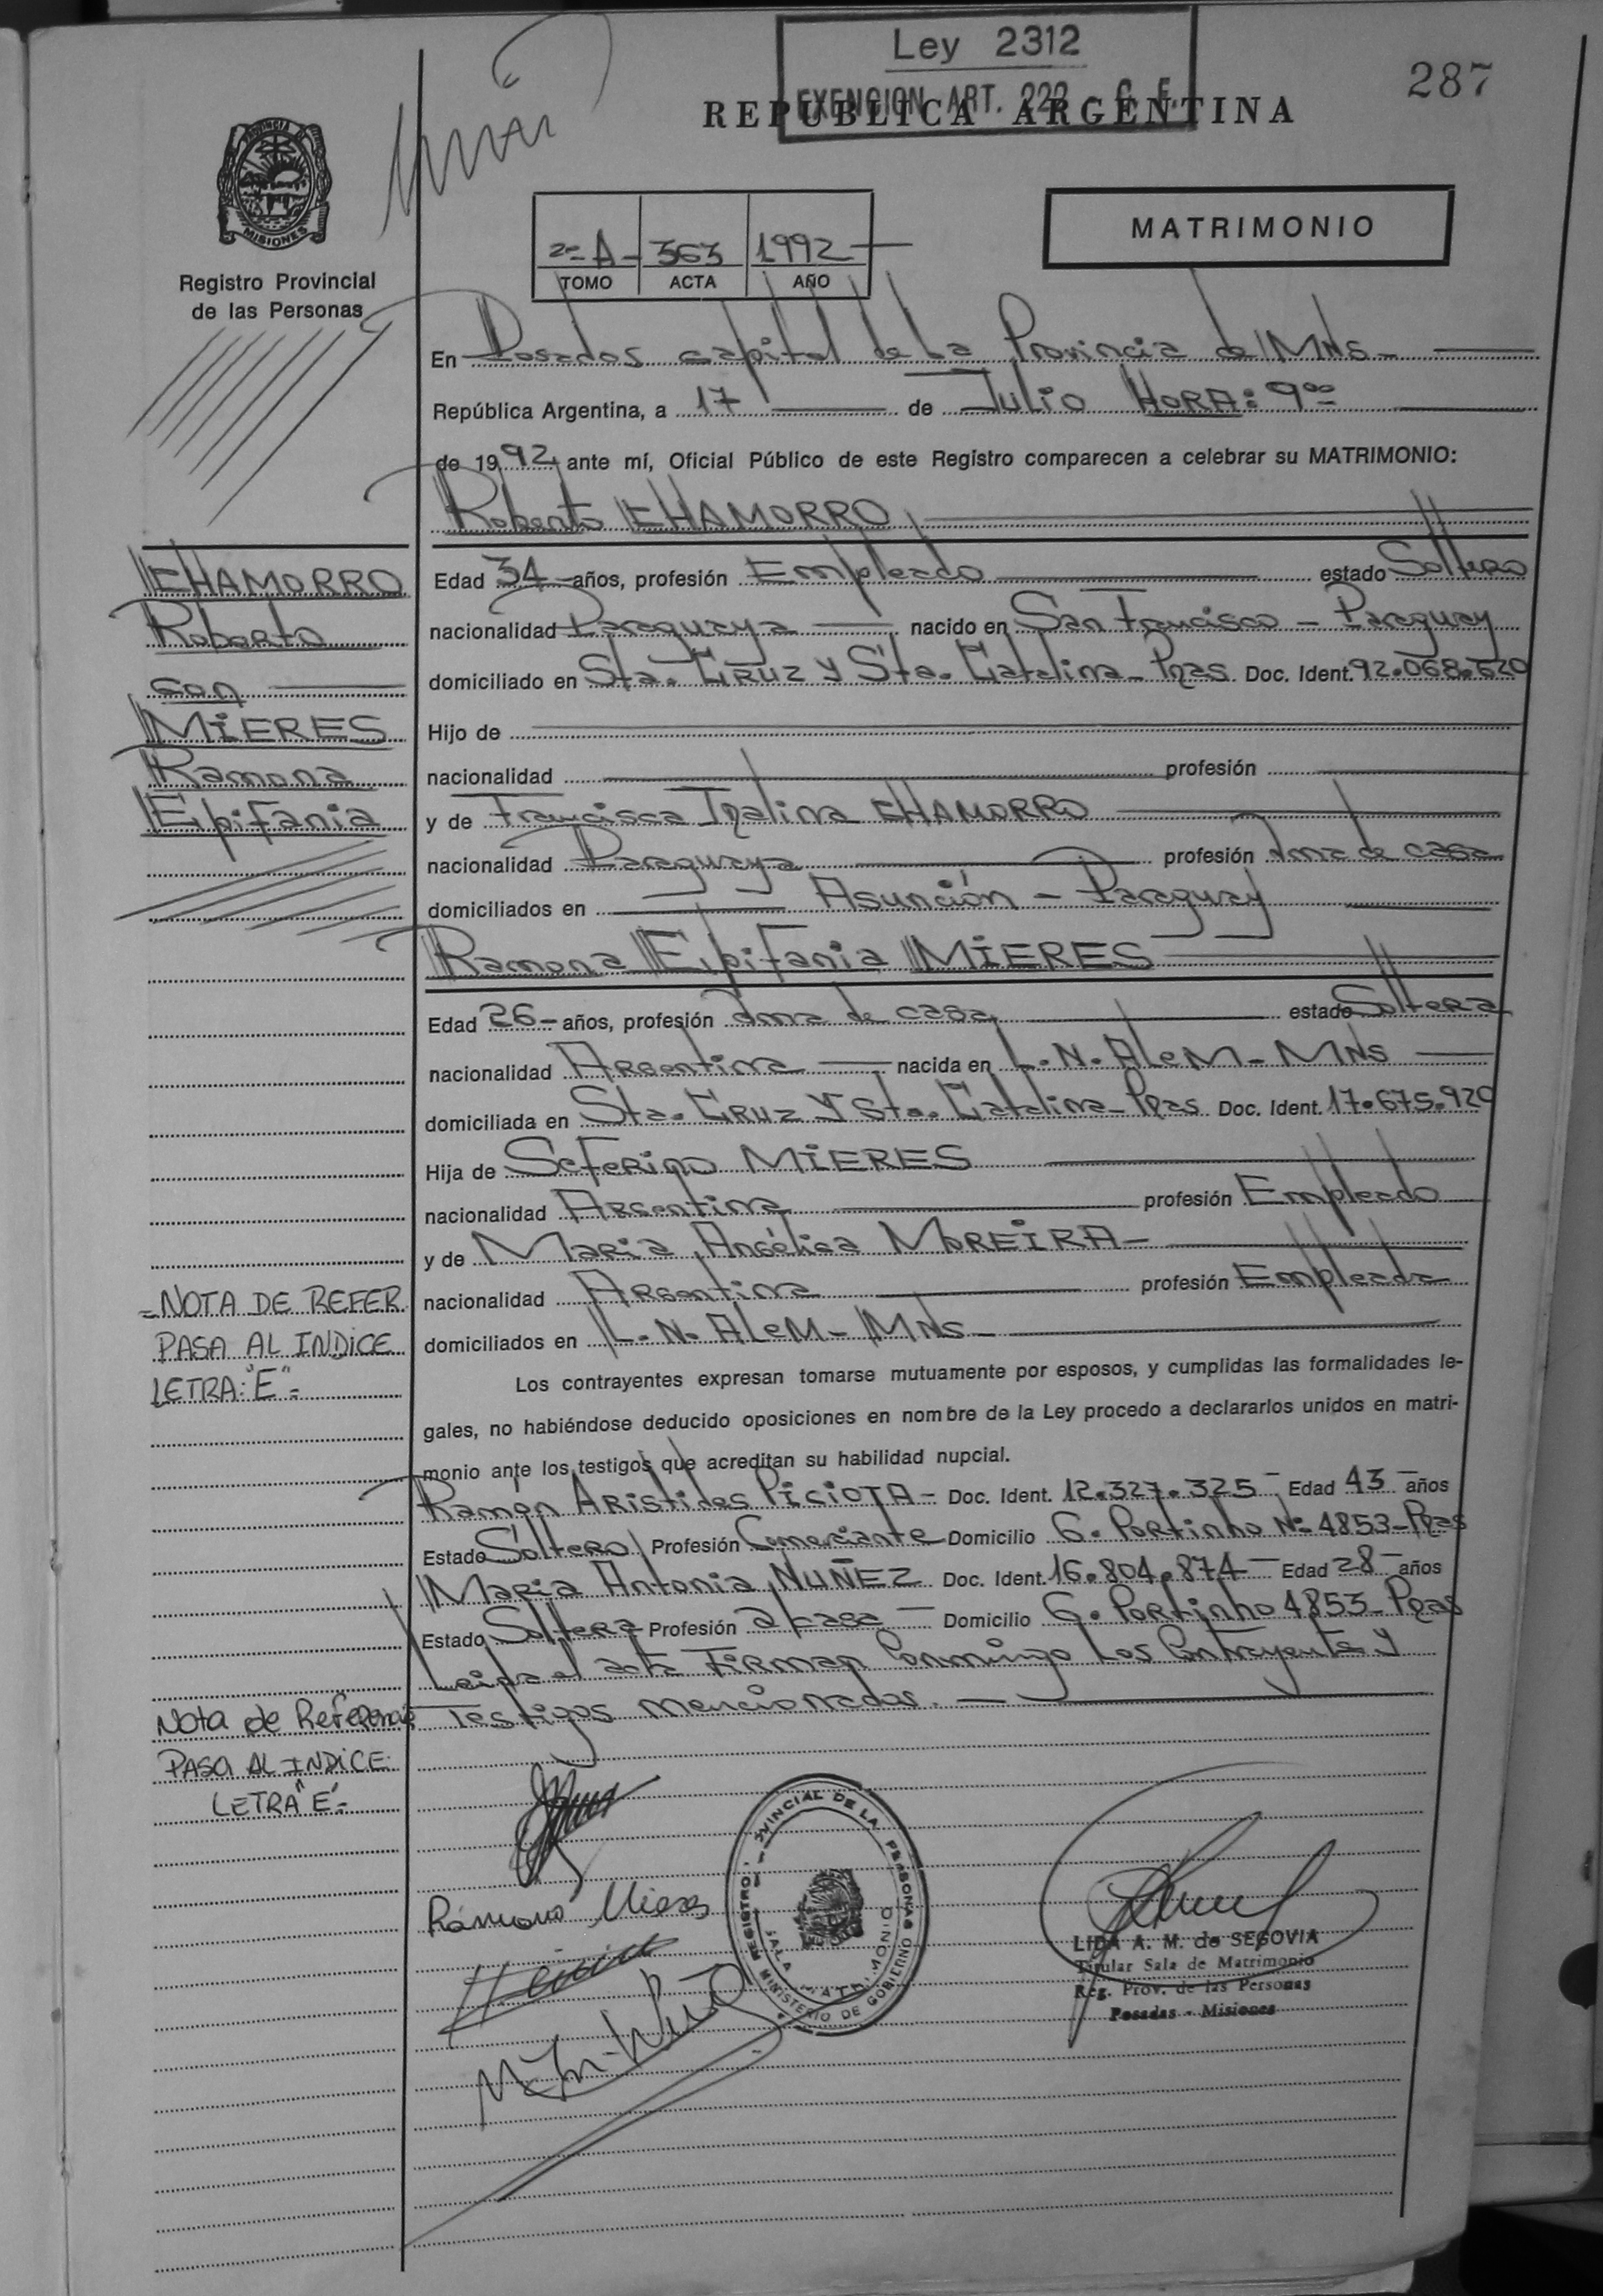 Ley 2312
EXENCION ART. 222 - C. F.
287
REPUBLICA ARGENTINA
PROVINCIA DE
MISIONES
Registro Provincial
de las Personas
2º A - 363 1992
TOMO ACTA AÑO
MATRIMONIO
En Posadas capital de la Provincia de Mns -
República Argentina, a 17 de Julio HORA: 9 00
de 1992 ante mí, Oficial Público de este Registro comparecen a celebrar su MATRIMONIO:
Roberto CHAMORRO
CHAMORRO
Roberto
con
MIERES
Ramona
Epifania
Edad 34 - años, profesión Empleado estado Soltero
nacionalidad Paraguaya nacido en San Francisco - Paraguay
domiciliado en Sta. Cruz y Sta. Catalina - Pdas Doc. Ident. 92.068.620
Hijo de
nacionalidad profesión
y de Francisca Idalina CHAMORRO
nacionalidad Paraguaya profesión ama de casa
domiciliados en Asunción - Paraguay
Ramona Epifania MIERES
Edad 26 - años, profesión ama de casa estado Soltera
nacionalidad Argentina nacida en L.N. Alem - Mns
domiciliada en Sta. Cruz y Sta. Catalina - Pdas Doc. Ident. 17.675.920
Hija de Seferino MIERES
nacionalidad Argentina profesión Empleado
y de Maria Angélica MOREIRA -
nacionalidad Argentina profesión Empleada
domiciliados en L.N. Alem - Mns -
= NOTA DE REFER
PASA AL INDICE
LETRA: "E" =
Los contrayentes expresan tomarse mutuamente por esposos, y cumplidas las formalidades le-
gales, no habiéndose deducido oposiciones en nombre de la Ley procedo a declararlos unidos en matri-
monio ante los testigos que acreditan su habilidad nupcial.
Ramón Aristides PICIOTA - Doc. Ident. 12.327.325 - Edad 43 - años
Estado Soltero Profesión Comerciante Domicilio G. Portinho Nº 4853 - Pdas
Maria Antonia NUÑEZ Doc. Ident. 16.804.874 - Edad 28 - años
Estado Soltera Profesión a/casa - Domicilio G. Portinho 4853 - Pdas
Leida el acta Firman Conmigo Los Contrayentes y
Testigos mencionados. -
Nota de Referencia
PASA AL INDICE
LETRA "E" =
Ramona Mieres
REGISTRO PROVINCIAL DE LA PERSONAS
SALA MATRIMONIO
MINISTERIO DE GOBIERNO
LIDA A. M. de SEGOVIA
Titular Sala de Matrimonio
Reg. Prov. de las Personas
Posadas - Misiones